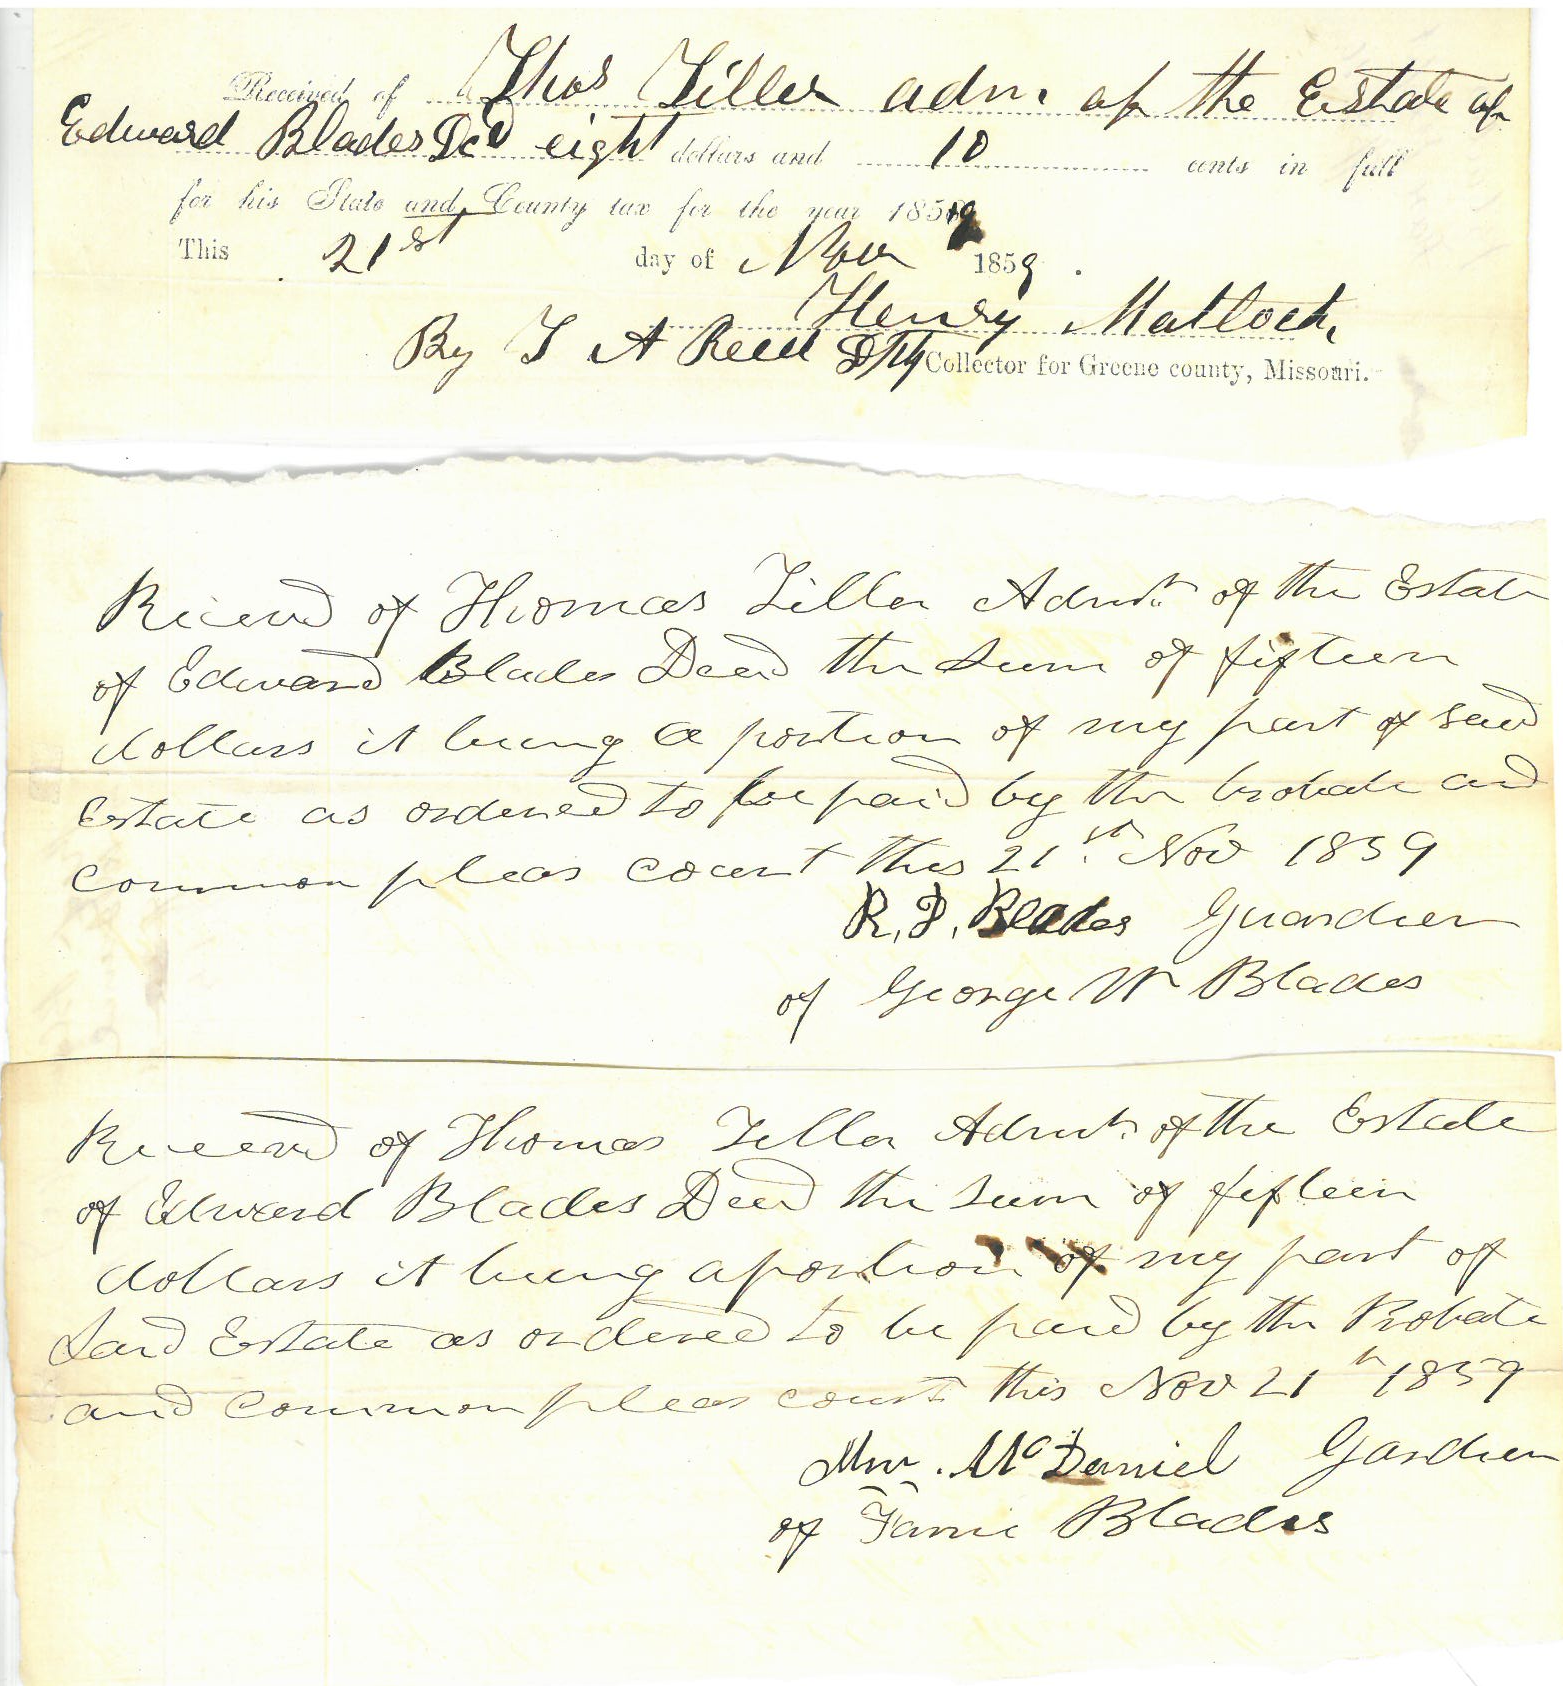 Received of Thos Tiller adm. of the Estate of
Edward Blades Dcd eight dollars and 10 cents in full
for his State and County tax for the year 1859
This 21st day of Nov 1859.
Henry Matlock,
By T A Reed Dpty Collector for Greene county, Missouri.
Received of Thomas Tiller Admr. of the Estate
of Edward Blades Decd the Sum of fifteen
dollars it being a portion of my part of said
Estate as ordered to be paid by the probate and
common pleas court this 21st Nov 1859
R. P. Blades Guardien
of George W Blades
Received of Thomas Tiller Admr. of the Estate
of Edward Blades Decd the Sum of fifteen
dollars it being a portion of my part of
Said Estate as ordered to be paid by the Probate
and common pleas court this Nov 21 1859
Mc Daniel Gardien
of Blades